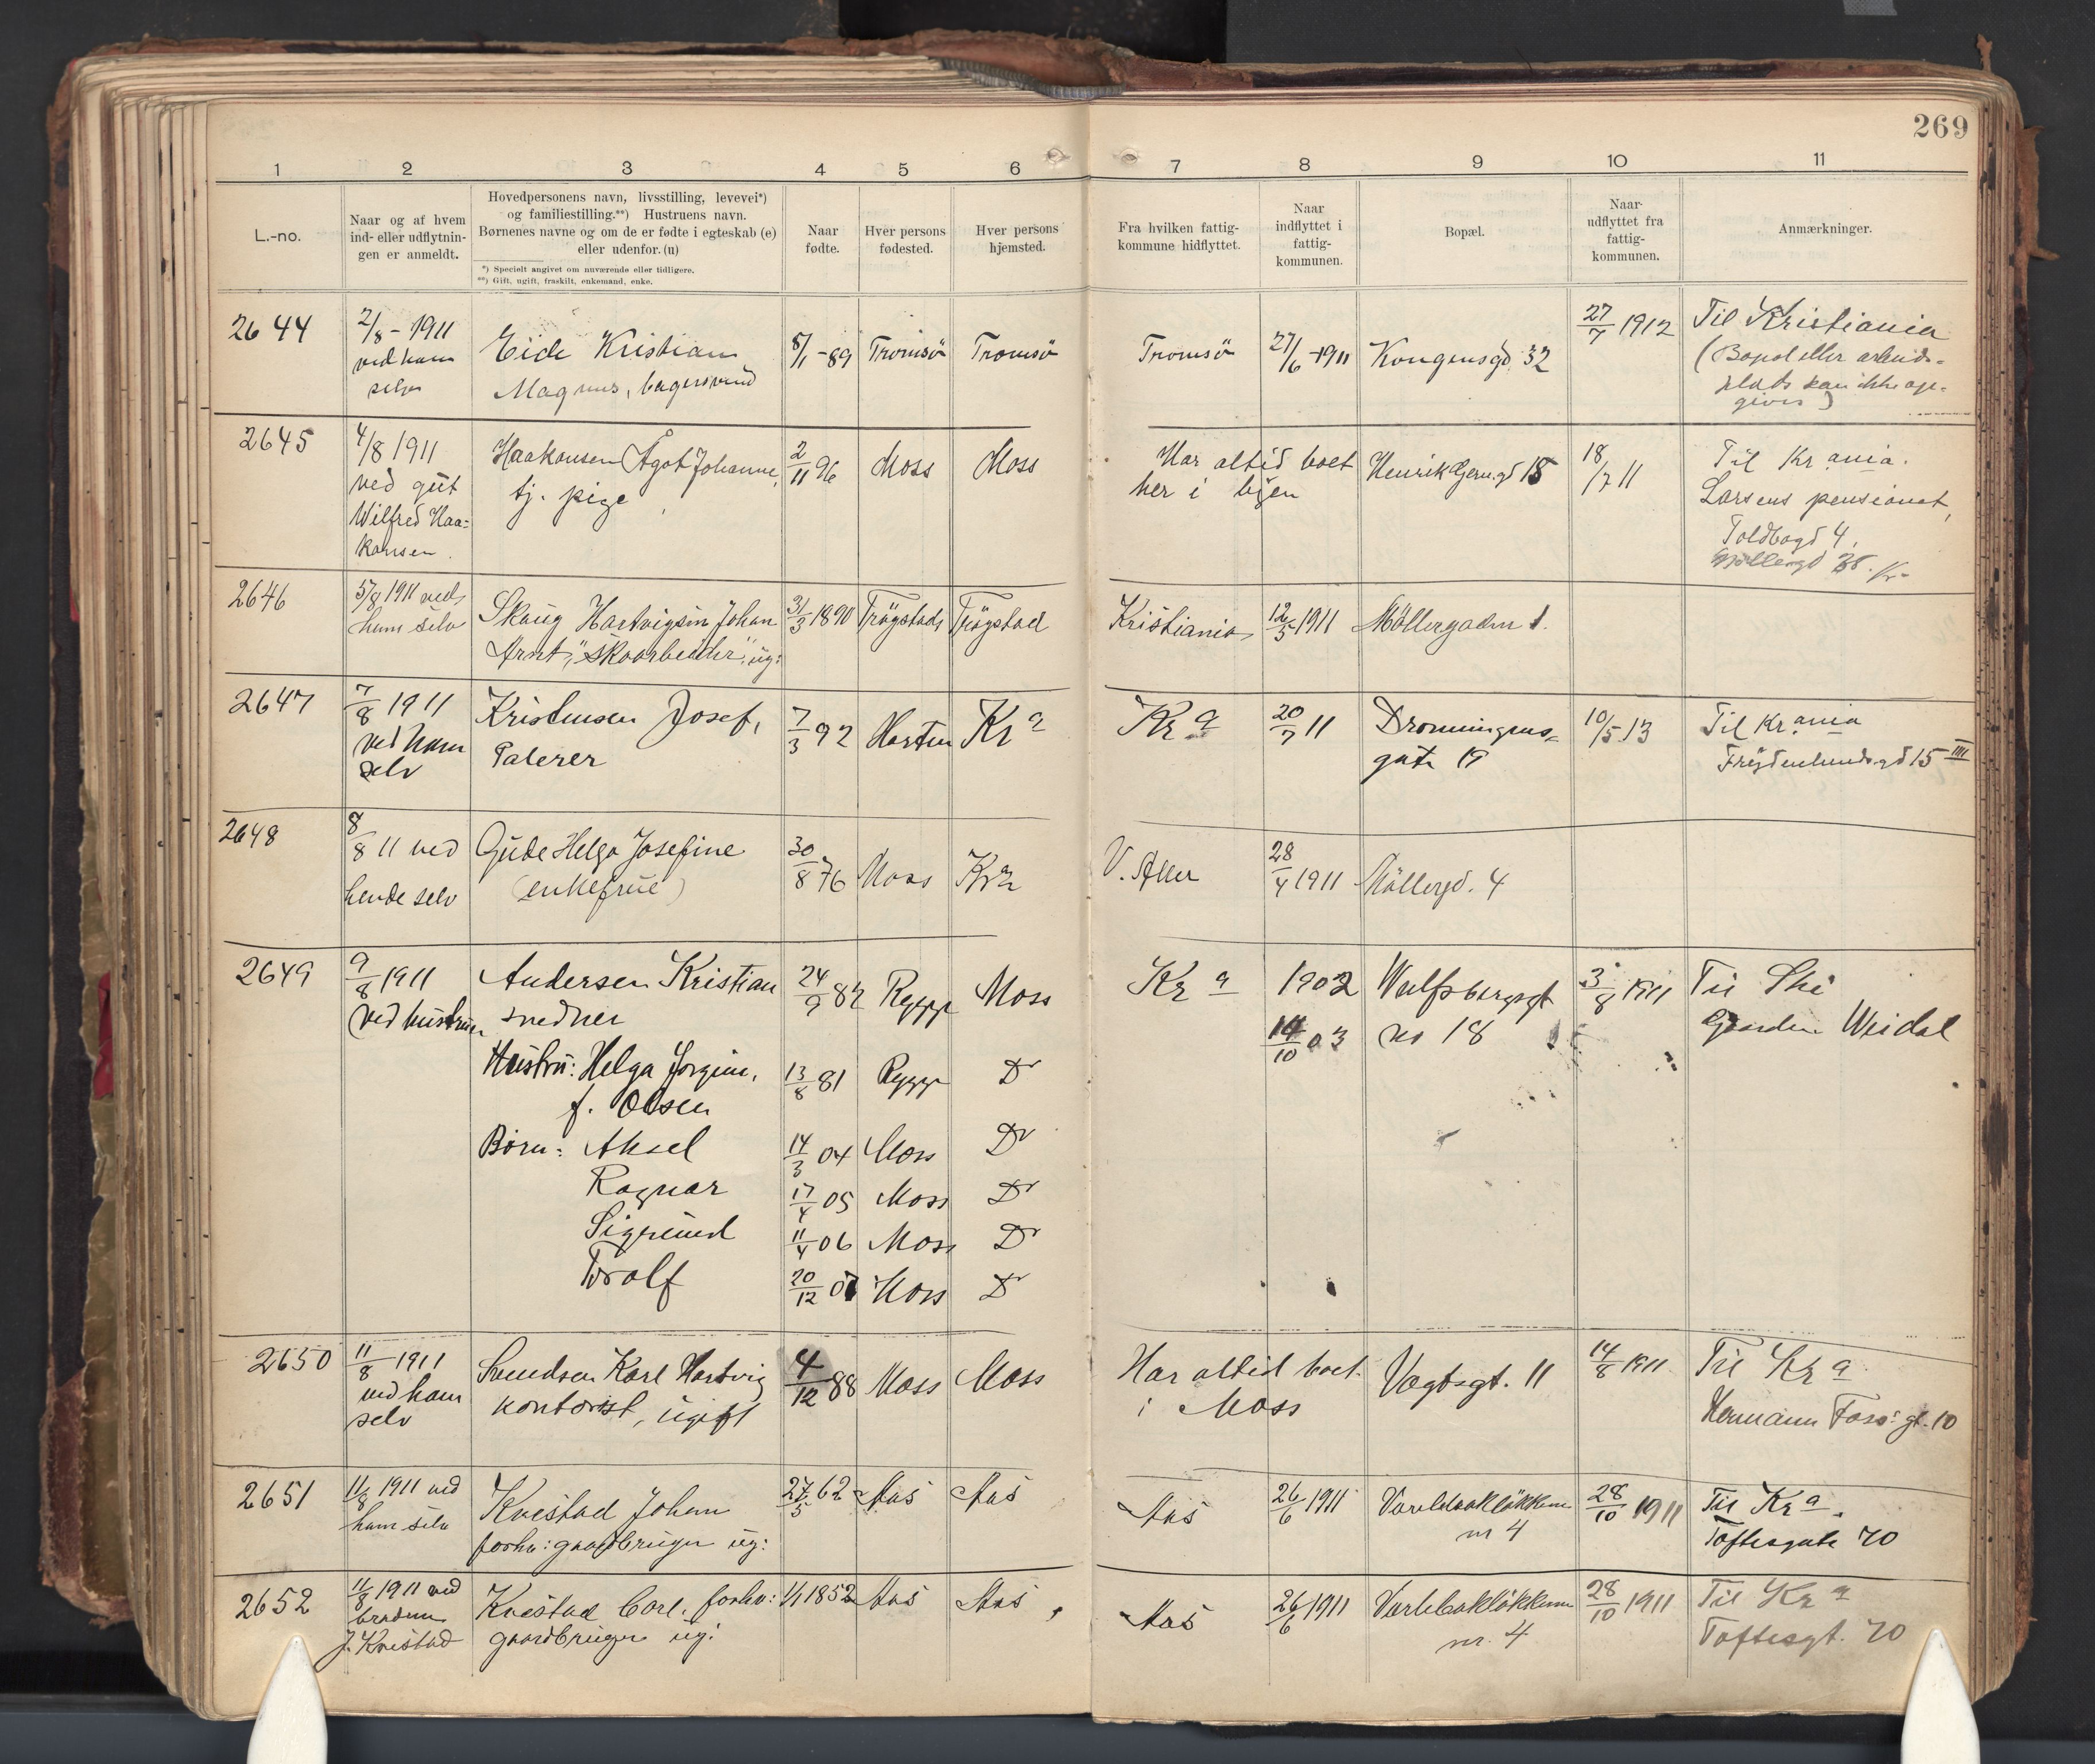 269
1 2 3 4 5 6 7 8 9 10 11
L.-no.
Naar og af hvem
ind- eller udflytnin-
gen er anmeldt.
Hovedpersonens navn, livsstilling, levevei*)
og familiestilling.**) Hustruens navn.
Børnenes navne og om de er fødte i egteskab (e)
eller udenfor. (u)
*) Specielt angivet om nuværende eller tidligere.
**) Gift, ugift, fraskilt, enkemand, enke.
Naar
fødte.
Hver persons
fødested.
Hver persons
hjemsted.
Fra hvilken fattig-
kommune hidflyttet.
Naar
indflyttet i
fattig-
kommunen.
Bopæl.
Naar
udflyttet fra
fattig-
kommunen.
Anmærkninger.
2644
2/8 - 1911
ved ham
selv
Eide Kristian
Magnus, bagersvend
8/1 - 89
Tromsö
Tromsö
Tromsö
27/6 - 1911
Kongensgd 32
27/7 1912
Til Kristiania
(Bopæl eller arbeids-
plads kan ikke op-
gives)
2645
4/8 1911
ved gut
Wilfred Haa-
konsen.
Haakonsen Ågot Johanne,
tj. pige
2/11 96
Moss
Moss
Har altid boet
her i byen
Henrik Gernergd 15
18/7 11
Til Krania.
Larsens pensionat,
Toldbogd 4.
Møllergd 38. Kr
2646
5/8 1911 ved
ham selv
Skaug Hartvigsen Johan
Arnt, "skoarbeider", ug:
31/3 1890
Trögstad
Trögstad
Kristiania
12/5 1911
Möllergaden 1.
2647
7/8 1911
ved ham
selv
Kristensen Josef,
Palerer
7/3 92
Horten
Kra
Kra
20/7 11
Dronningens-
gate 19
10/5 13
Til Krania
Frydenlundsgd 15 III
2648
8/8 11 ved
hende selv
Gude Helga Josefine
(enkefrue)
30/8 76
Moss
Kra
V. Aker
28/4 1911
Möllergd. 4
2649
9/8 1911
ved hustruen
Andersen Kristian
snedker
24/9 82
Rygge
Moss
Kra
1902
14/10 03
Wulfsbergsgt
no 18
3/8 1911
Til Ski
Gaarden Weidal
Hustru: Helga Jorgine,
f. Olsen
13/8 81
Rygge
Do
Børn: Aksel
14/3 04
Moss
Do
Ragnar
17/4 05
Moss
Do
Sigmund
11/4 06
Moss
Do
Torolf
20/12 07
Moss
Do
2650
11/8 1911
ved ham
selv
Svendsen Karl Hartvig
kontorist, ugift
4/12 88
Moss
Moss
Har altid boet
i Moss
Vogtsgt. 11
14/8 1911
Til Kra
Hermann Foss' gt. 10
2651
11/8 1911 ved
ham selv
Kvestad Johan
forhv: gaardbruger ug:
27/5 62
Aas
Aas
Aas
26/6 1911
Varlebaklökken
nr 4
28/10 1911
Til Kra.
Toftesgate 70
2652
11/8 1911 ved
broderen
J. Kvestad
Kvestad Carl, forhv:
gaardbruger ug:
1/1 1852
Aas
Aas
Aas
26/6 1911
Varlebaklökken
nr. 4
28/10 1911
Til Kra
Toftesgt. 70